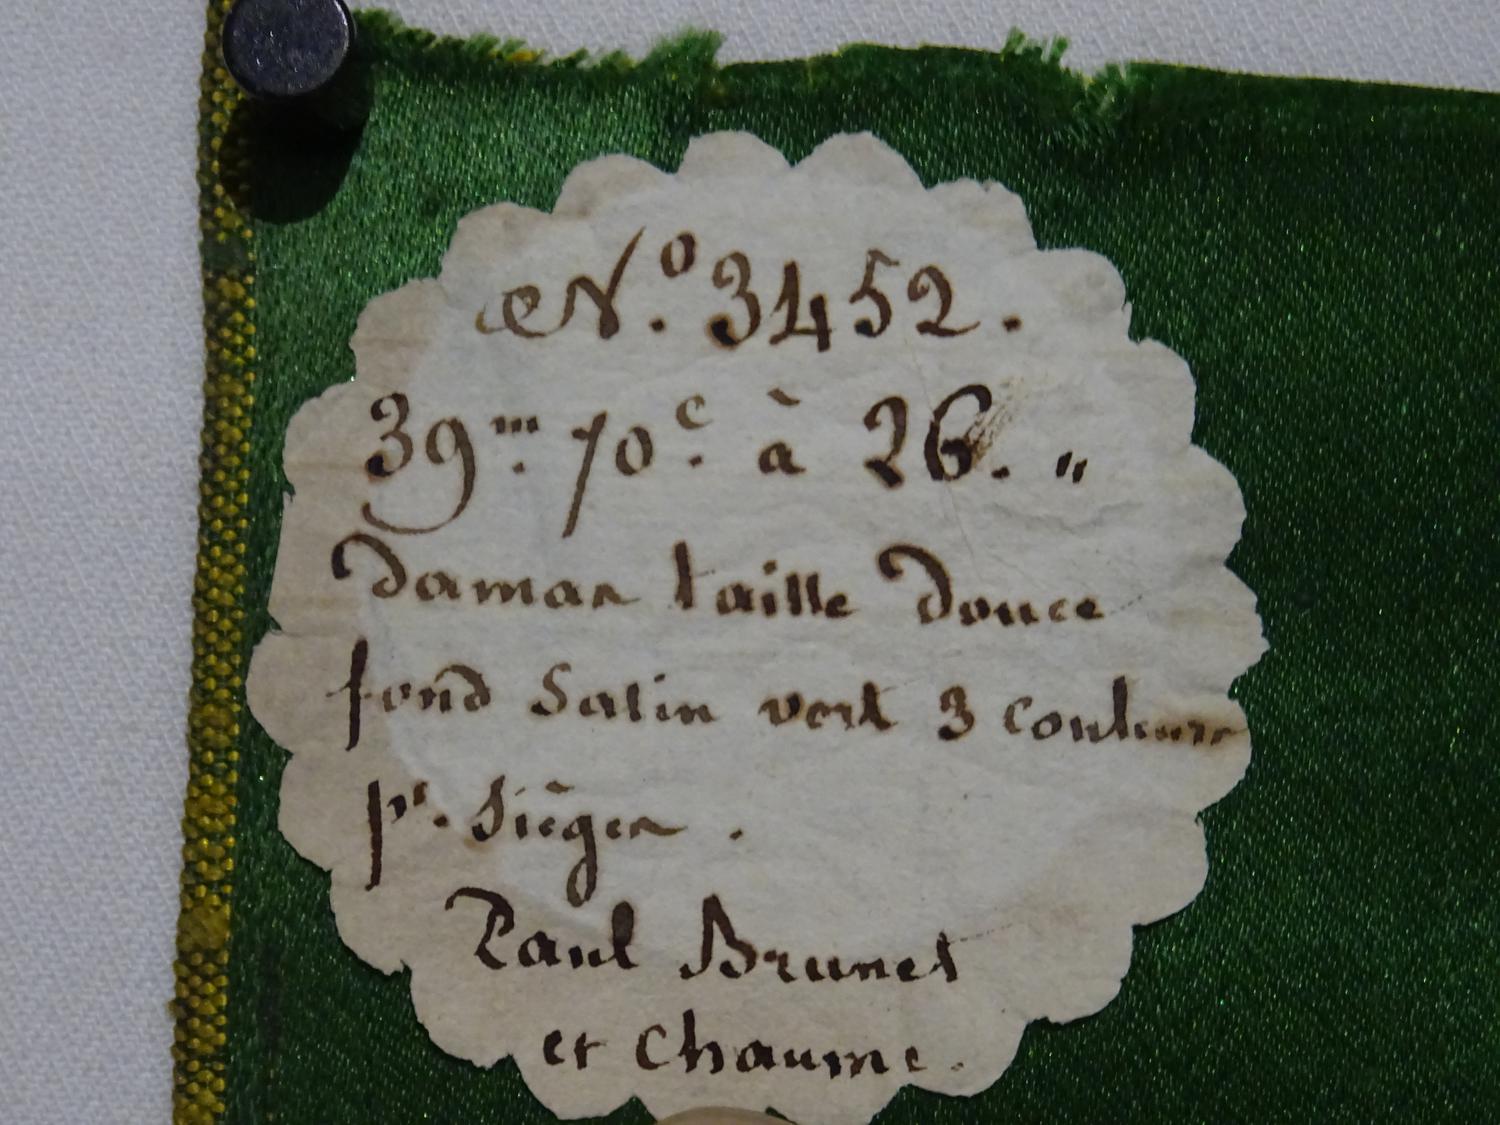 N.º 3452.
39.ᵐ 70.ᶜ à 26. "
Damas taille Douce
fond Satin vert 3 couleurs
pʳ. Sièges.
Paul Brunet
et Chaume.